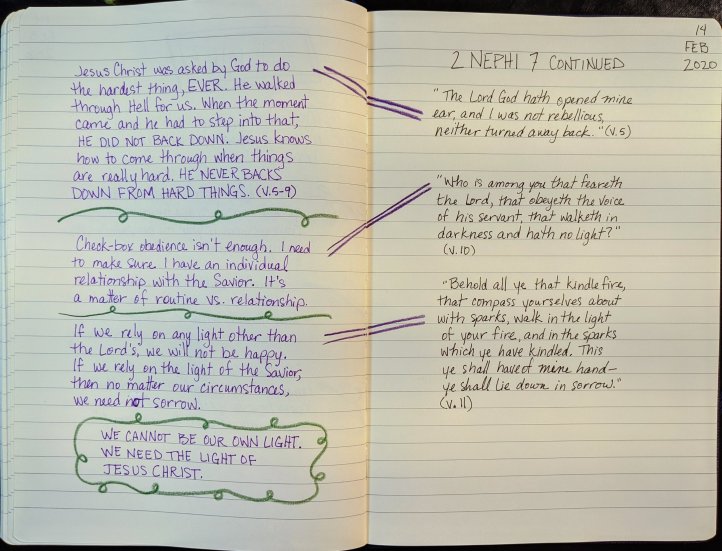 Jesus Christ was asked by God to do
the hardest thing, EVER. He walked
through Hell for us. When the moment
came and he had to step into that,
HE DID NOT BACK DOWN. Jesus knows
how to come through when things
are really hard. HE NEVER BACKS
DOWN FROM HARD THINGS. (V.5-9)
Check-box obedience isn't enough. I need
to make sure I have an individual
relationship with the Savior. It's
a matter of routine vs. relationship.
If we rely on any light other than
the Lord's, we will not be happy.
If we rely on the light of the Savior,
then no matter our circumstances,
we need not sorrow.
WE CANNOT BE OUR OWN LIGHT.
WE NEED THE LIGHT OF
JESUS CHRIST.
14
FEB
2020
2 NEPHI 7 CONTINUED
"The Lord God hath opened mine
ear, and I was not rebellious,
neither turned away back." (V.5)
"Who is among you that feareth
the Lord, that obeyeth the voice
of his servant, that walketh in
darkness and hath no light?"
(V.10)
"Behold all ye that kindle fire,
that compass yourselves about
with sparks, walk in the light
of your fire, and in the sparks
which ye have kindled. This
ye shall have of mine hand—
ye shall lie down in sorrow."
(V.11)